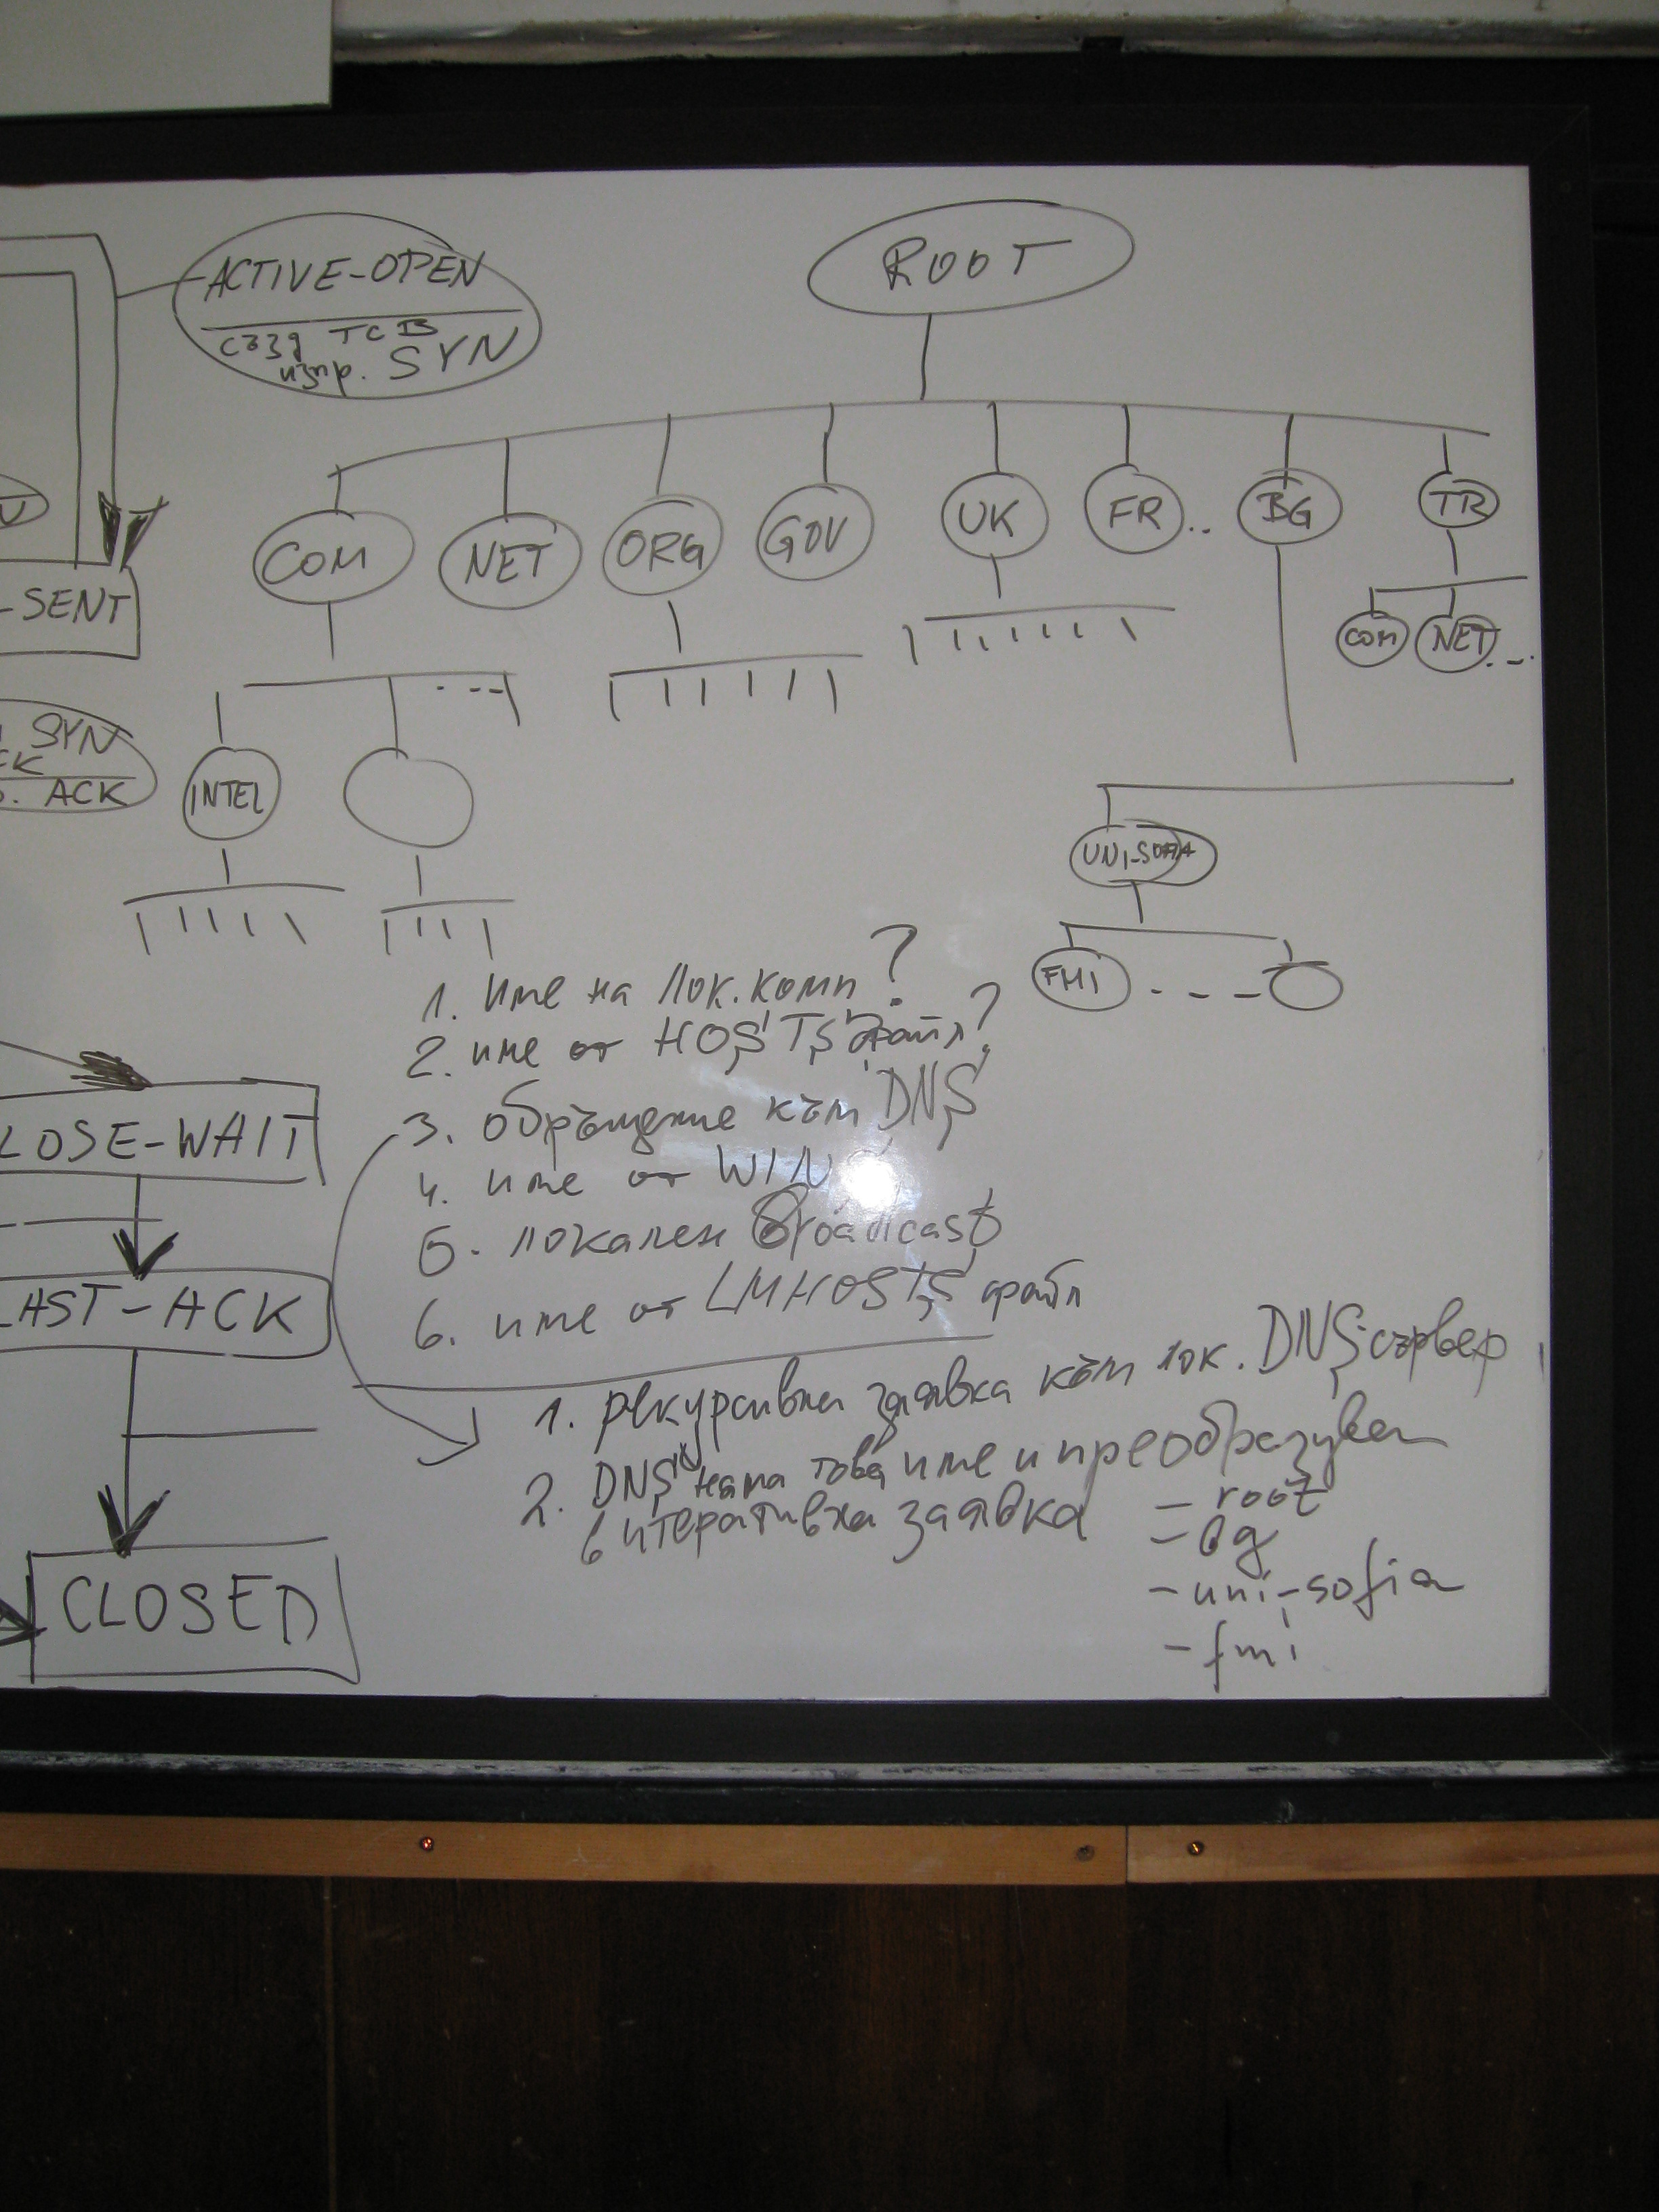 ACTIVE-OPEN
създ TCB
изпр. SYN
ROOT
COM NET ORG GOV UK FR.. BG TR
COM NET...
-SENT
SYN
ACK
INTEL
UNI-SOFIA
FMI - - -
1. име на лок. комп?
2. име от HOSTS файл?
3. обръщение към DNS
4. име от WIN
5. локален broadcast
6. име от LMHOSTS файл
LOSE-WAIT
LAST-ACK
CLOSED
1. рекурсивна заявка към лок. DNS-сървер
2. DNS няма това име и преобразува
в итеративна заявка
- root
- bg
- uni-sofia
- fmi